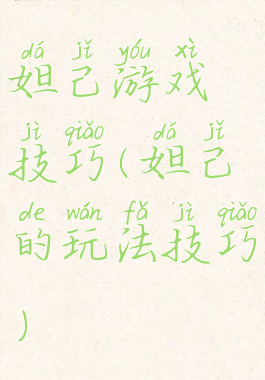 dá jǐ yóu xì
妲己游戏
jì qiǎo dá jǐ
技巧(妲己
de wán fǎ jì qiǎo
的玩法技巧
)